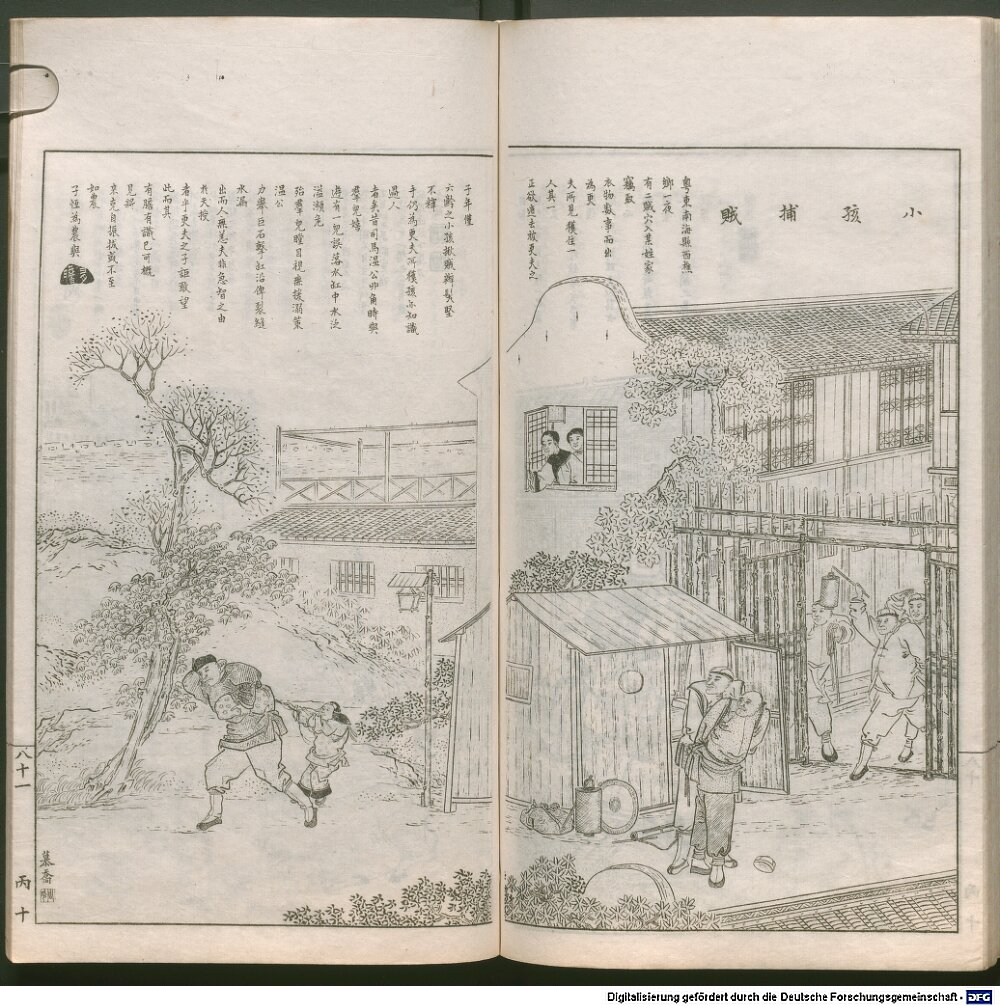 小孩捕賊
粵東南海縣西樵
鄉一夜
有二賊穴入某姓家
竊取
衣物數事而出
為更
夫所見獲住一
人其一
正欲逸去被更夫之
子年僅
六齡之小孩揪賊辮髮堅
不釋
手仍為更夫所獲孩亦知識
過人
者矣昔司馬溫公丱角時與
羣兒嬉
遊有一兒誤落水缸中水泛
溢瀕危
殆羣兒瞠目視無援溺策
溫公
力舉巨石擊缸沿俾裂縫
水漏
出而人無恙夫非急智之由
於天授
者乎更夫之子詎敢望
此而其
有膽有識已可概
見將
來克自振拔或不至
如農
子恆為農矣
八十一
丙十
慕喬
Digitalisierung gefördert durch die Deutsche Forschungsgemeinschaft - DFG